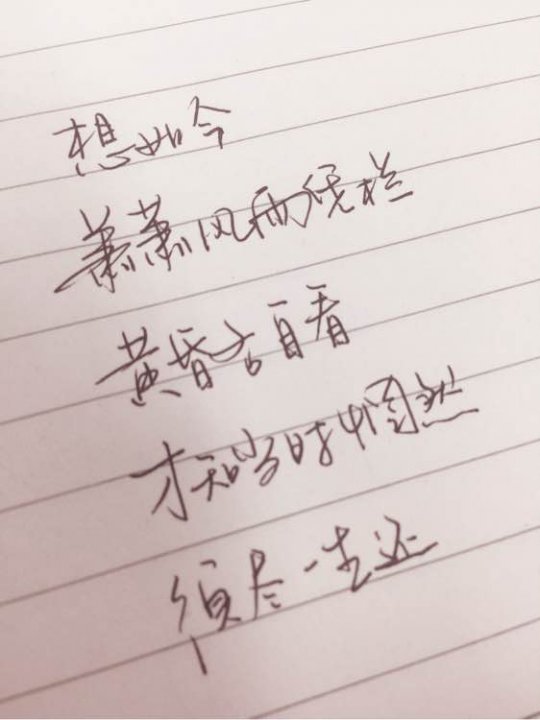 想如今
萧萧风雨凭栏
黄昏各自看
才知当时惘然
须尽一生还